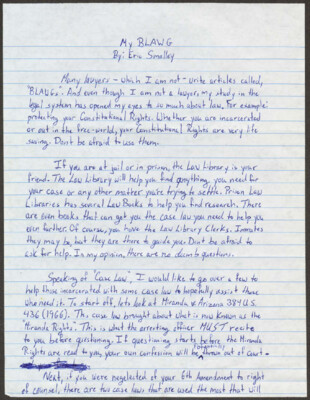 My BLAWG
By: Eric Smalley
Many lawyers - which I am not - write articles called,
"BLAWGs". And even though I am not a lawyer, my study in the
legal system has opened my eyes to so much about law. For example:
protecting your Constitutional Rights. Whether you are incarcerated
or out in the free-world, your Constitutional Rights are very life
saving. Don't be afraid to use them.
If you are at jail or in prison, the Law Library is your
friend. The Law Library will help you find anything you need for
your case or any other matter you're trying to settle. Prison Law
Libraries has several Law Books to help you find research. There
are even books that can get you the case law you need to help you
even further. Of course, you have the Law Library Clerks. Inmates
they may be, but they are there to guide you. Don't be afraid to
ask for help. In my opinion, there are no dumb questions.
Speaking of "Case Law", I would like to go over a few to
help those incarcerated with some case law to hopefully assist those
who need it. To start off, lets look at Miranda v. Arizona 384 U.S.
436 (1966). This case law brought about what is now known as the
"Miranda Rights". This is what the arresting officer MUST recite
to you before questioning. If questioning starts before the Miranda
Rights are read to you, your own confession will be thrown out of court.
Next, if you were neglected of your 6th Amendment to right
of counsel, there are two case laws that are used the most that will